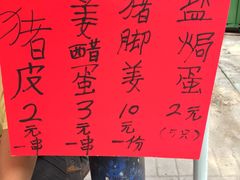 猪皮2元一串
姜醋蛋3元一串
猪脚姜10元一份
盐焗蛋2元(5只)